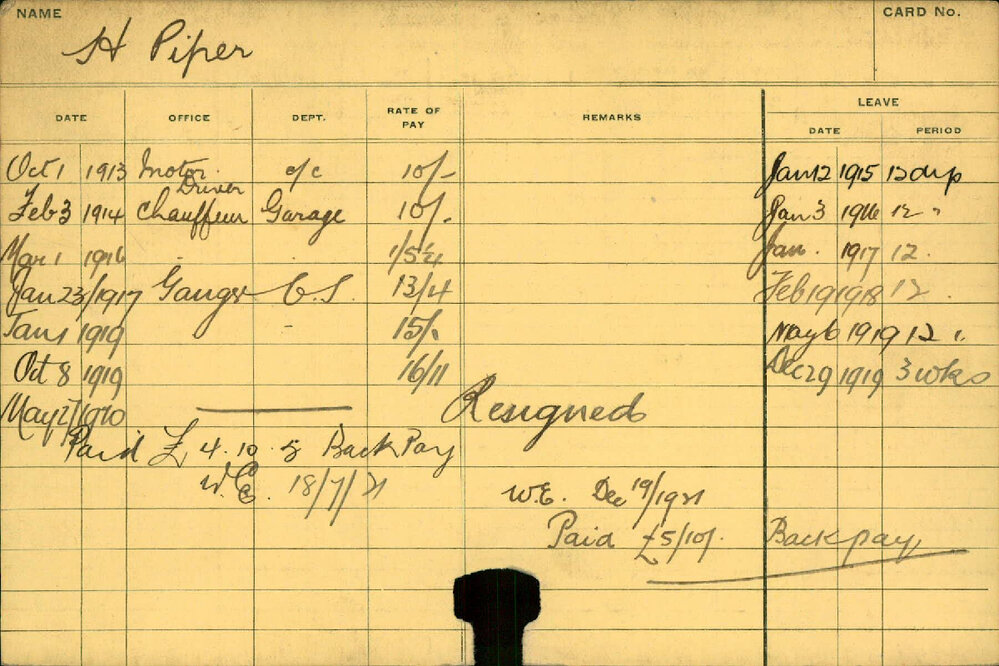 NAME
CARD No.
H Piper
LEAVE
DATE OFFICE DEPT. RATE OF PAY REMARKS DATE PERIOD
Oct 1 1913 Motor Driver c/c 10/- Jan 12 1915 12 days
Feb 3 1914 Chauffeur Garage 10/- Jan 3 1916 12 "
Mar 1 1916 Jan. 1917 12.
Jan 23/1917 Ganger C.S. 13/4 Feb 19 1918 12
Jan 1 1919 15/- May 6 1919 12 "
Oct 8 1919 16/11 Dec 29 1919 3 wks
May 27/1920 Resigned
Paid £4.10.5 Back Pay
W.E. 18/7/21
W.E. Dec 19/1921
Paid £5/10/- Back pay